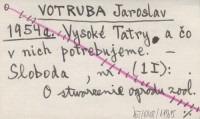 VOTRUBA Jaroslav
1954a. Vysoké Tatry a čo
v nich potrebujeme. -
Sloboda, (1I):
O stworzenie ogrodu zool.